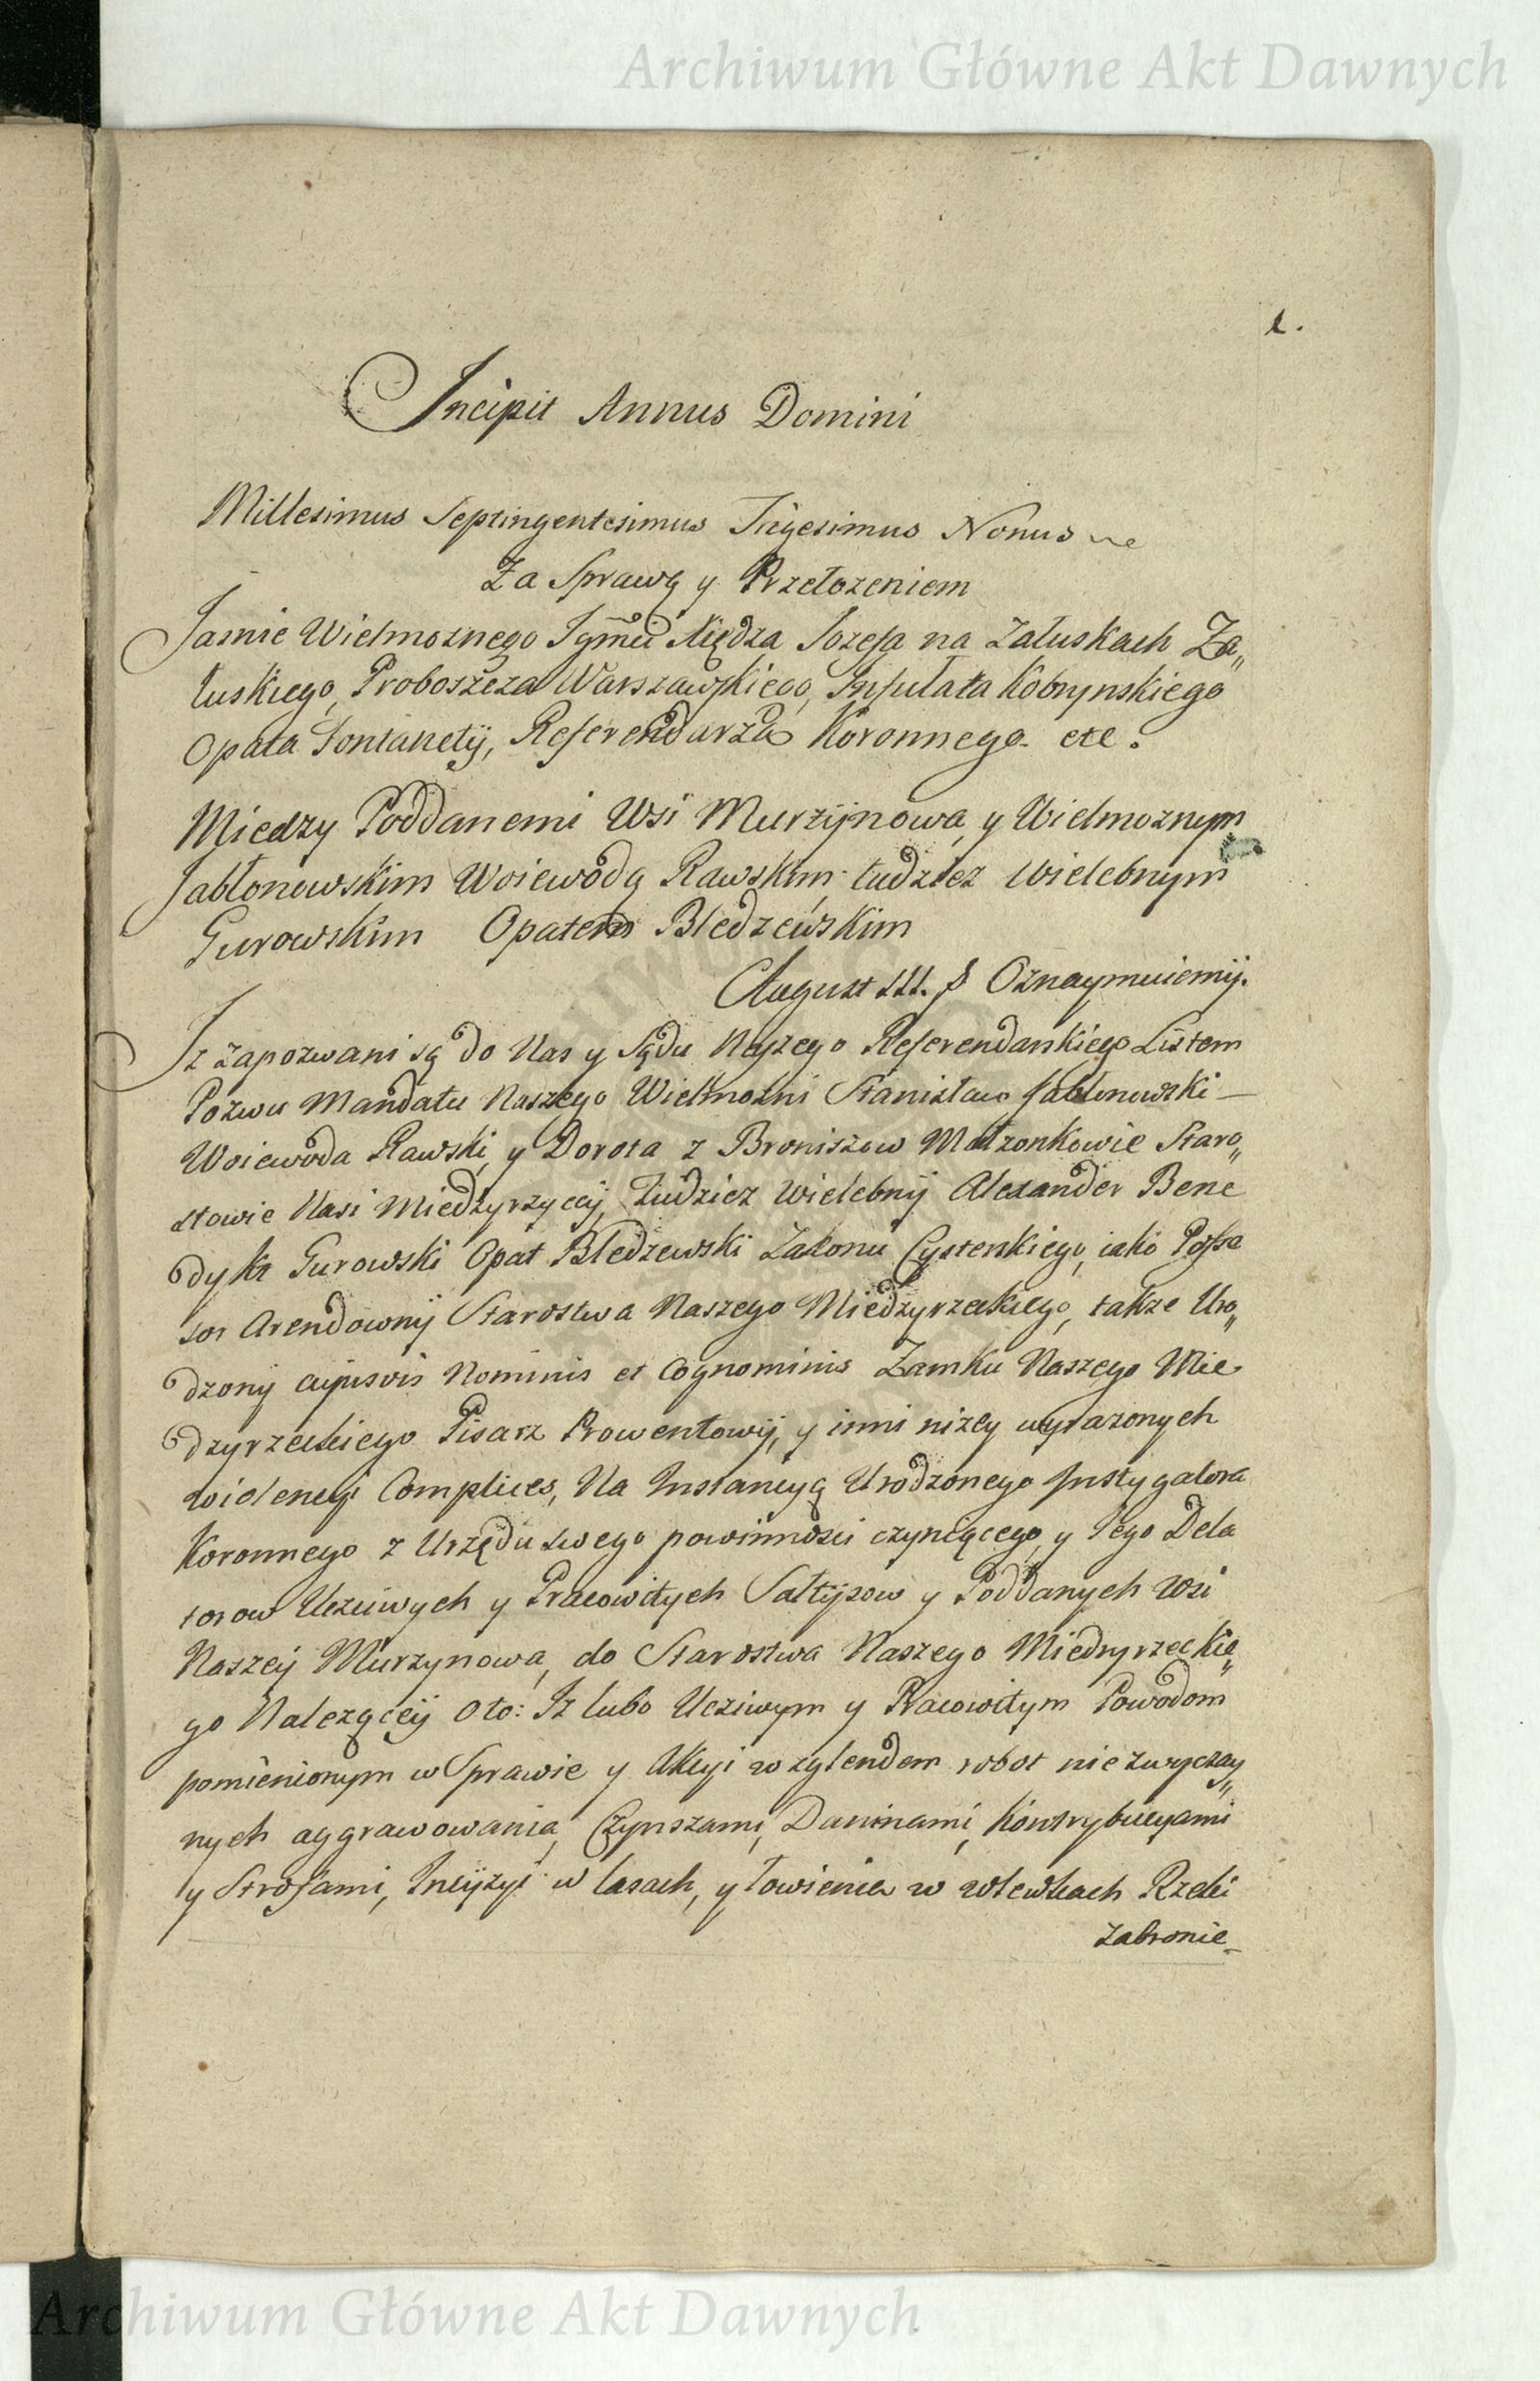 Archiwum Główne Akt Dawnych
1.
Incipit Annus Domini
Millesimus Septingentesimus Trigesimus Nonus
Za Sprawą y Przełozeniem
Jasnie Wielmoznego Jgmci Xiędza Jozefa na Załuskach Za„
łuskiego, Proboszcza Warszawskiego, Infułata Kobrynskiego
Opata Fontanety, Referendarza Koronnego etc.
Miedzy Poddanemi Wsi Murzÿnowa, y Wielmoznym
Jabłonowskim Woiewodą Rawskim tudziez Wielebnym
Gurowskim Opatem Bledzewskim
August III. Oznaymuiemÿ.
Iz zapozwani są do Nas y Sądu Naszego Referendarskiego Listem
Pozwu Mandatu Naszego Wielmozni Stanisław Jabłonowski —
Woiewoda Rawski, y Dorota z Broniszow Małzonkowie Staro„
stowie Nasi Miedzyrzyccÿ, Tudziez Wielebnÿ Alexander Bene
dykt Gurowski Opat Bledzewski Zakonu Cysterskiego, iako Posse
sor Arendownÿ Starostwa Naszego Miedzyrzeckiego, takze Uro„
dzony cujusvis Nominis et Cognominis Zamku Naszego Mie
dzyrzeckiego Pisarz Prowentowÿ, y inni nizey wyrazonych
Complices, Na Instancyą Urodzonego Instygatora
Koronnego z Urzędu swego powinnosci czyniącego, y Jego Dela
torow Uczciwych y Pracowitych Sałtÿsow y Poddanych Wsi
Naszeÿ Murzynowa, do Starostwa Naszego Miedzyrzeckie„
go Nalezącеÿ Oto: Iz lubo Ucziwym y Pracowitym Powodom
pomienionym w Sprawie y Akcyi wzglendem robot niezwyczay„
nych aggrawowania, Czynszami, Daninami, Kontrybucyami
y Strofami, Incÿzyi w lasach, y łowienia w Rzeki
zabronie„
Archiwum Główne Akt Dawnych